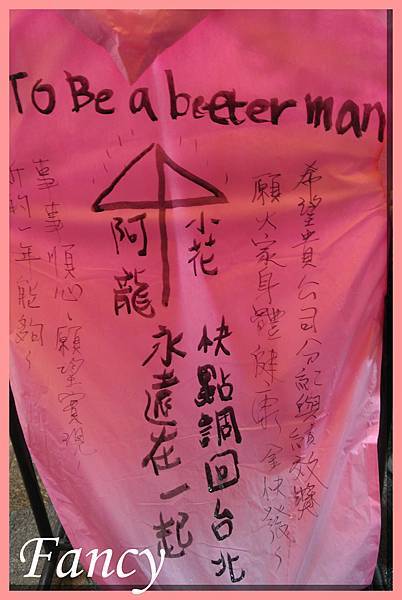 To Be a better man
希望貴公司分紅與績效獎
願大家身體健康、金快發~
小花
阿龍
快點調回台北
永遠在一起
事事順心、願望實現,
新的一年能夠~
Fancy